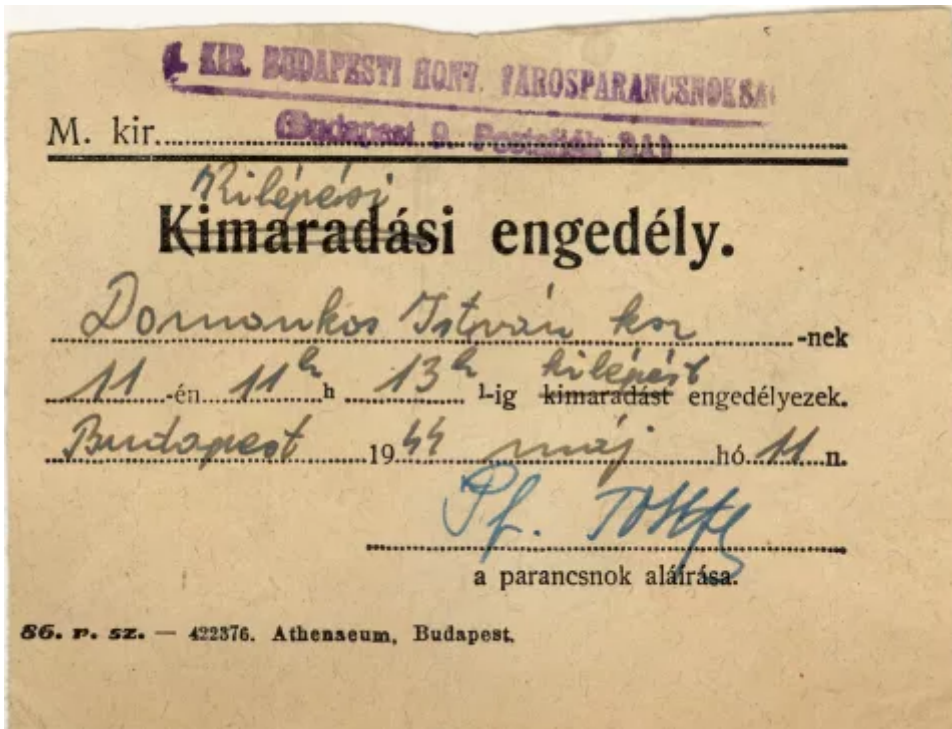 M. KIR. BUDAPESTI HONV. VÁROSPARANCSNOKSÁG
M. kir. (Budapest 9. Postafiók
Kilépési
Kimaradási engedély.
Domonkos István -nek
11 -én 11h h 13h h-ig kilépést kimaradást engedélyezek.
Budapest 1944 máj hó 11 n.
Pf.
a parancsnok aláírása.
86. r. sz. — 422376. Athenaeum, Budapest.